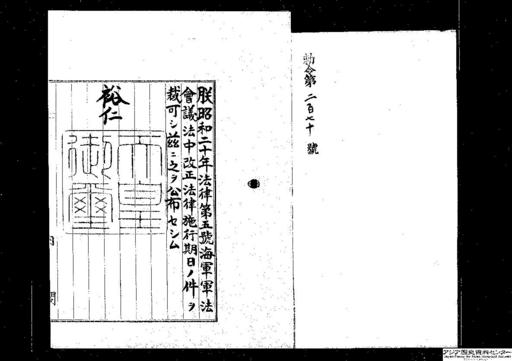 勅令第二百七十號
朕昭和二十年法律第五號海軍軍法
會議法中改正法律施行期日ノ件ヲ
裁可シ茲ニ之ヲ公布セシム
裕仁
天皇
御璽
アジア歴史資料センター